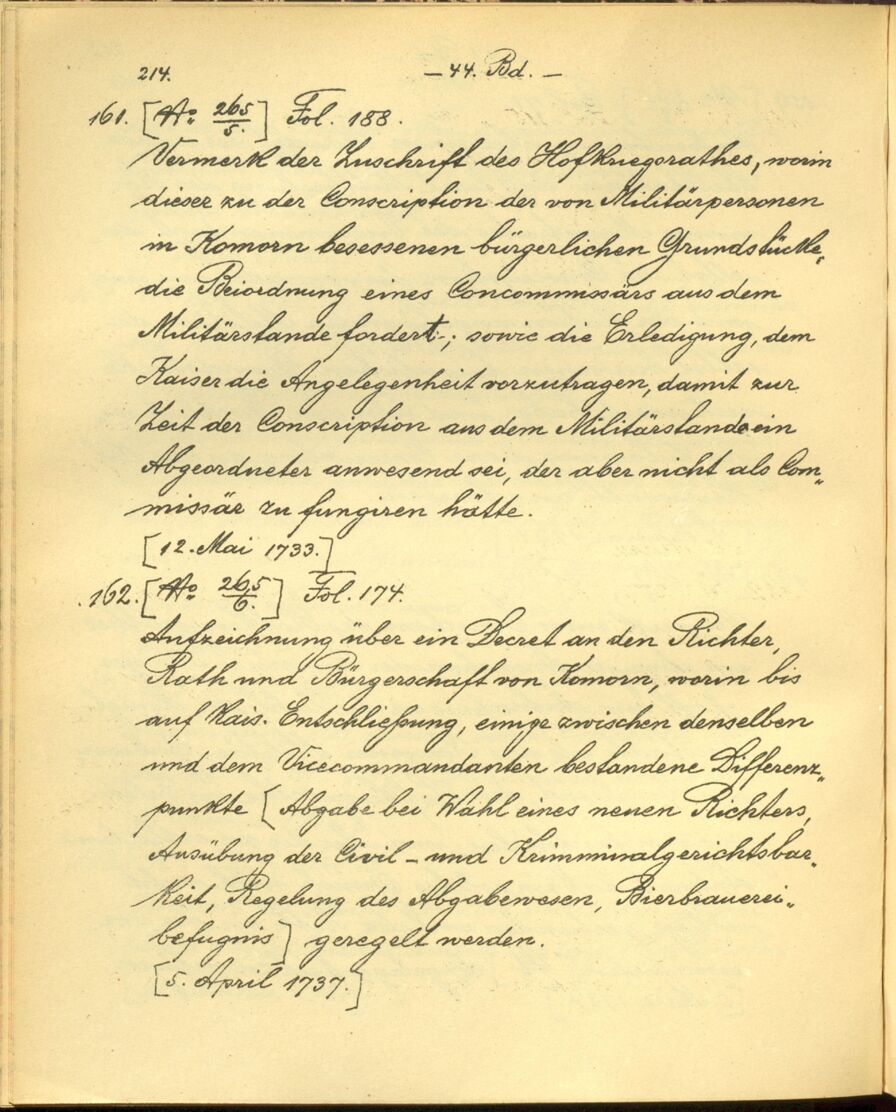 214. — 44. Bd. —
161. [No 265/5.] Fol. 188.
Vermerk der Zuschrift des Hofkriegsrathes, worin
dieser zu der Conscription der von Militärpersonen
in Komorn besessenen bürgerlichen Grundstücke,
die Beiordnung eines Concommissärs aus dem
Militärstande fordert; sowie die Erledigung, dem
Kaiser die Angelegenheit vorzutragen, damit zur
Zeit der Conscription aus dem Militärstande ein
Abgeordneter anwesend sei, der aber nicht als Com„
missär zu fungiren hätte.
[12. Mai 1733.]
162. [No 265/6.] Fol. 174.
Aufzeichnung über ein Decret an den Richter,
Rath und Bürgerschaft von Komorn, worin bis
auf Kais. Entschließung, einige zwischen denselben
und dem Vicecommandanten bestandene Differenz„
punkte [Abgabe bei Wahl eines neuen Richters,
Ausübung der Civil- und Krimminalgerichtsbar„
keit, Regelung des Abgabewesen, Bierbrauerei„
befugnis] geregelt werden.
[5. April 1737.]